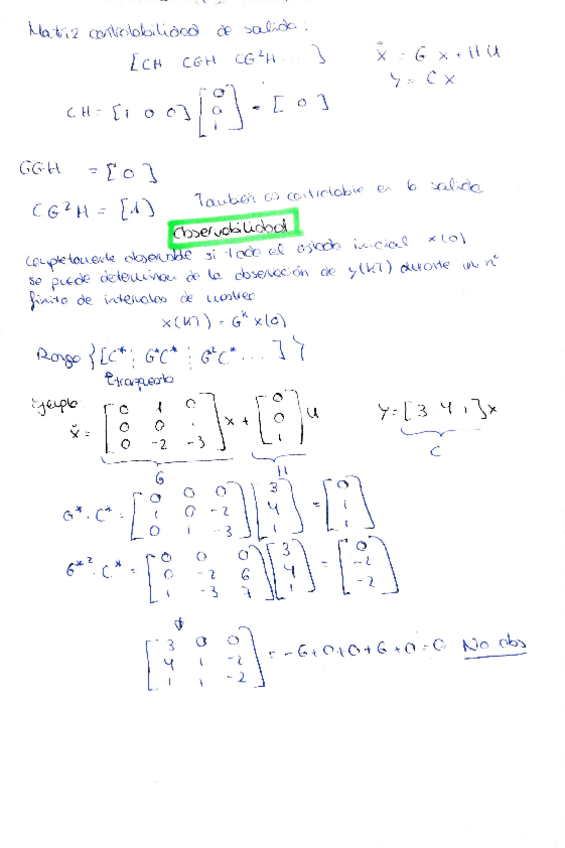 Matriz controlabilidad de salida:
[CH CGH CG²H ... ] ẋ = G x + H U
Y = C x
CH = [1 0 0] [0 0 1] = [ 0 ]
CGH = [0]
CG²H = [1] También es controlable en la salida
Observabilidad
Completamente observable si todo el estado inicial x(0)
se puede determinar de la observación de y(KT) durante un nº
finito de intervalos de muestreo
x(KT) = Gᴷ x(0)
Rango {[C* ⋮ G*C* ⋮ G²C* ... ]}
traspuesta
Ejemplo
ẋ = [0 1 0; 0 0 1; 0 -2 -3] x + [0 0 1] U Y = [3 4 1] x
G H C
G* · C* = [0 0 0; 1 0 -2; 0 1 -3] [3 4 1] = [0 1 1]
G*² · C* = [0 0 0; 0 -2 6; 1 -3 7] [3 4 1] = [0 -2 -2]
↓
[3 0 0; 4 1 -2; 1 1 -2] = -6+0+0+6+0=0 No obs